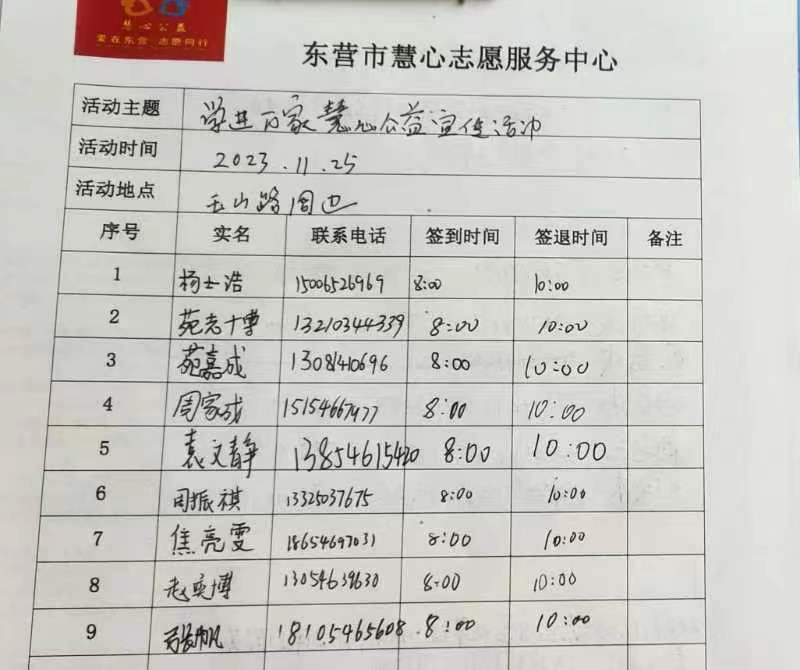 慧心公益
爱在东营 志愿同行
东营市慧心志愿服务中心
活动主题 学进万家慧心公益宣传活动
活动时间 2023.11.25
活动地点 玉山路周边
序号 实名 联系电话 签到时间 签退时间 备注
1 杨士浩 15006526969 8:00 10:00
2 苑志博 13210344339 8:00 10:00
3 苑嘉成 13081410696 8:00 10:00
4 周家成 15154667977 8:00 10:00
5 袁文静 13854615420 8:00 10:00
6 周振祺 13325037675 8:00 10:00
7 焦亮雯 18654697031 8:00 10:00
8 赵奕博 13054639630 8:00 10:00
9 张帆 18105465608 8:00 10:00